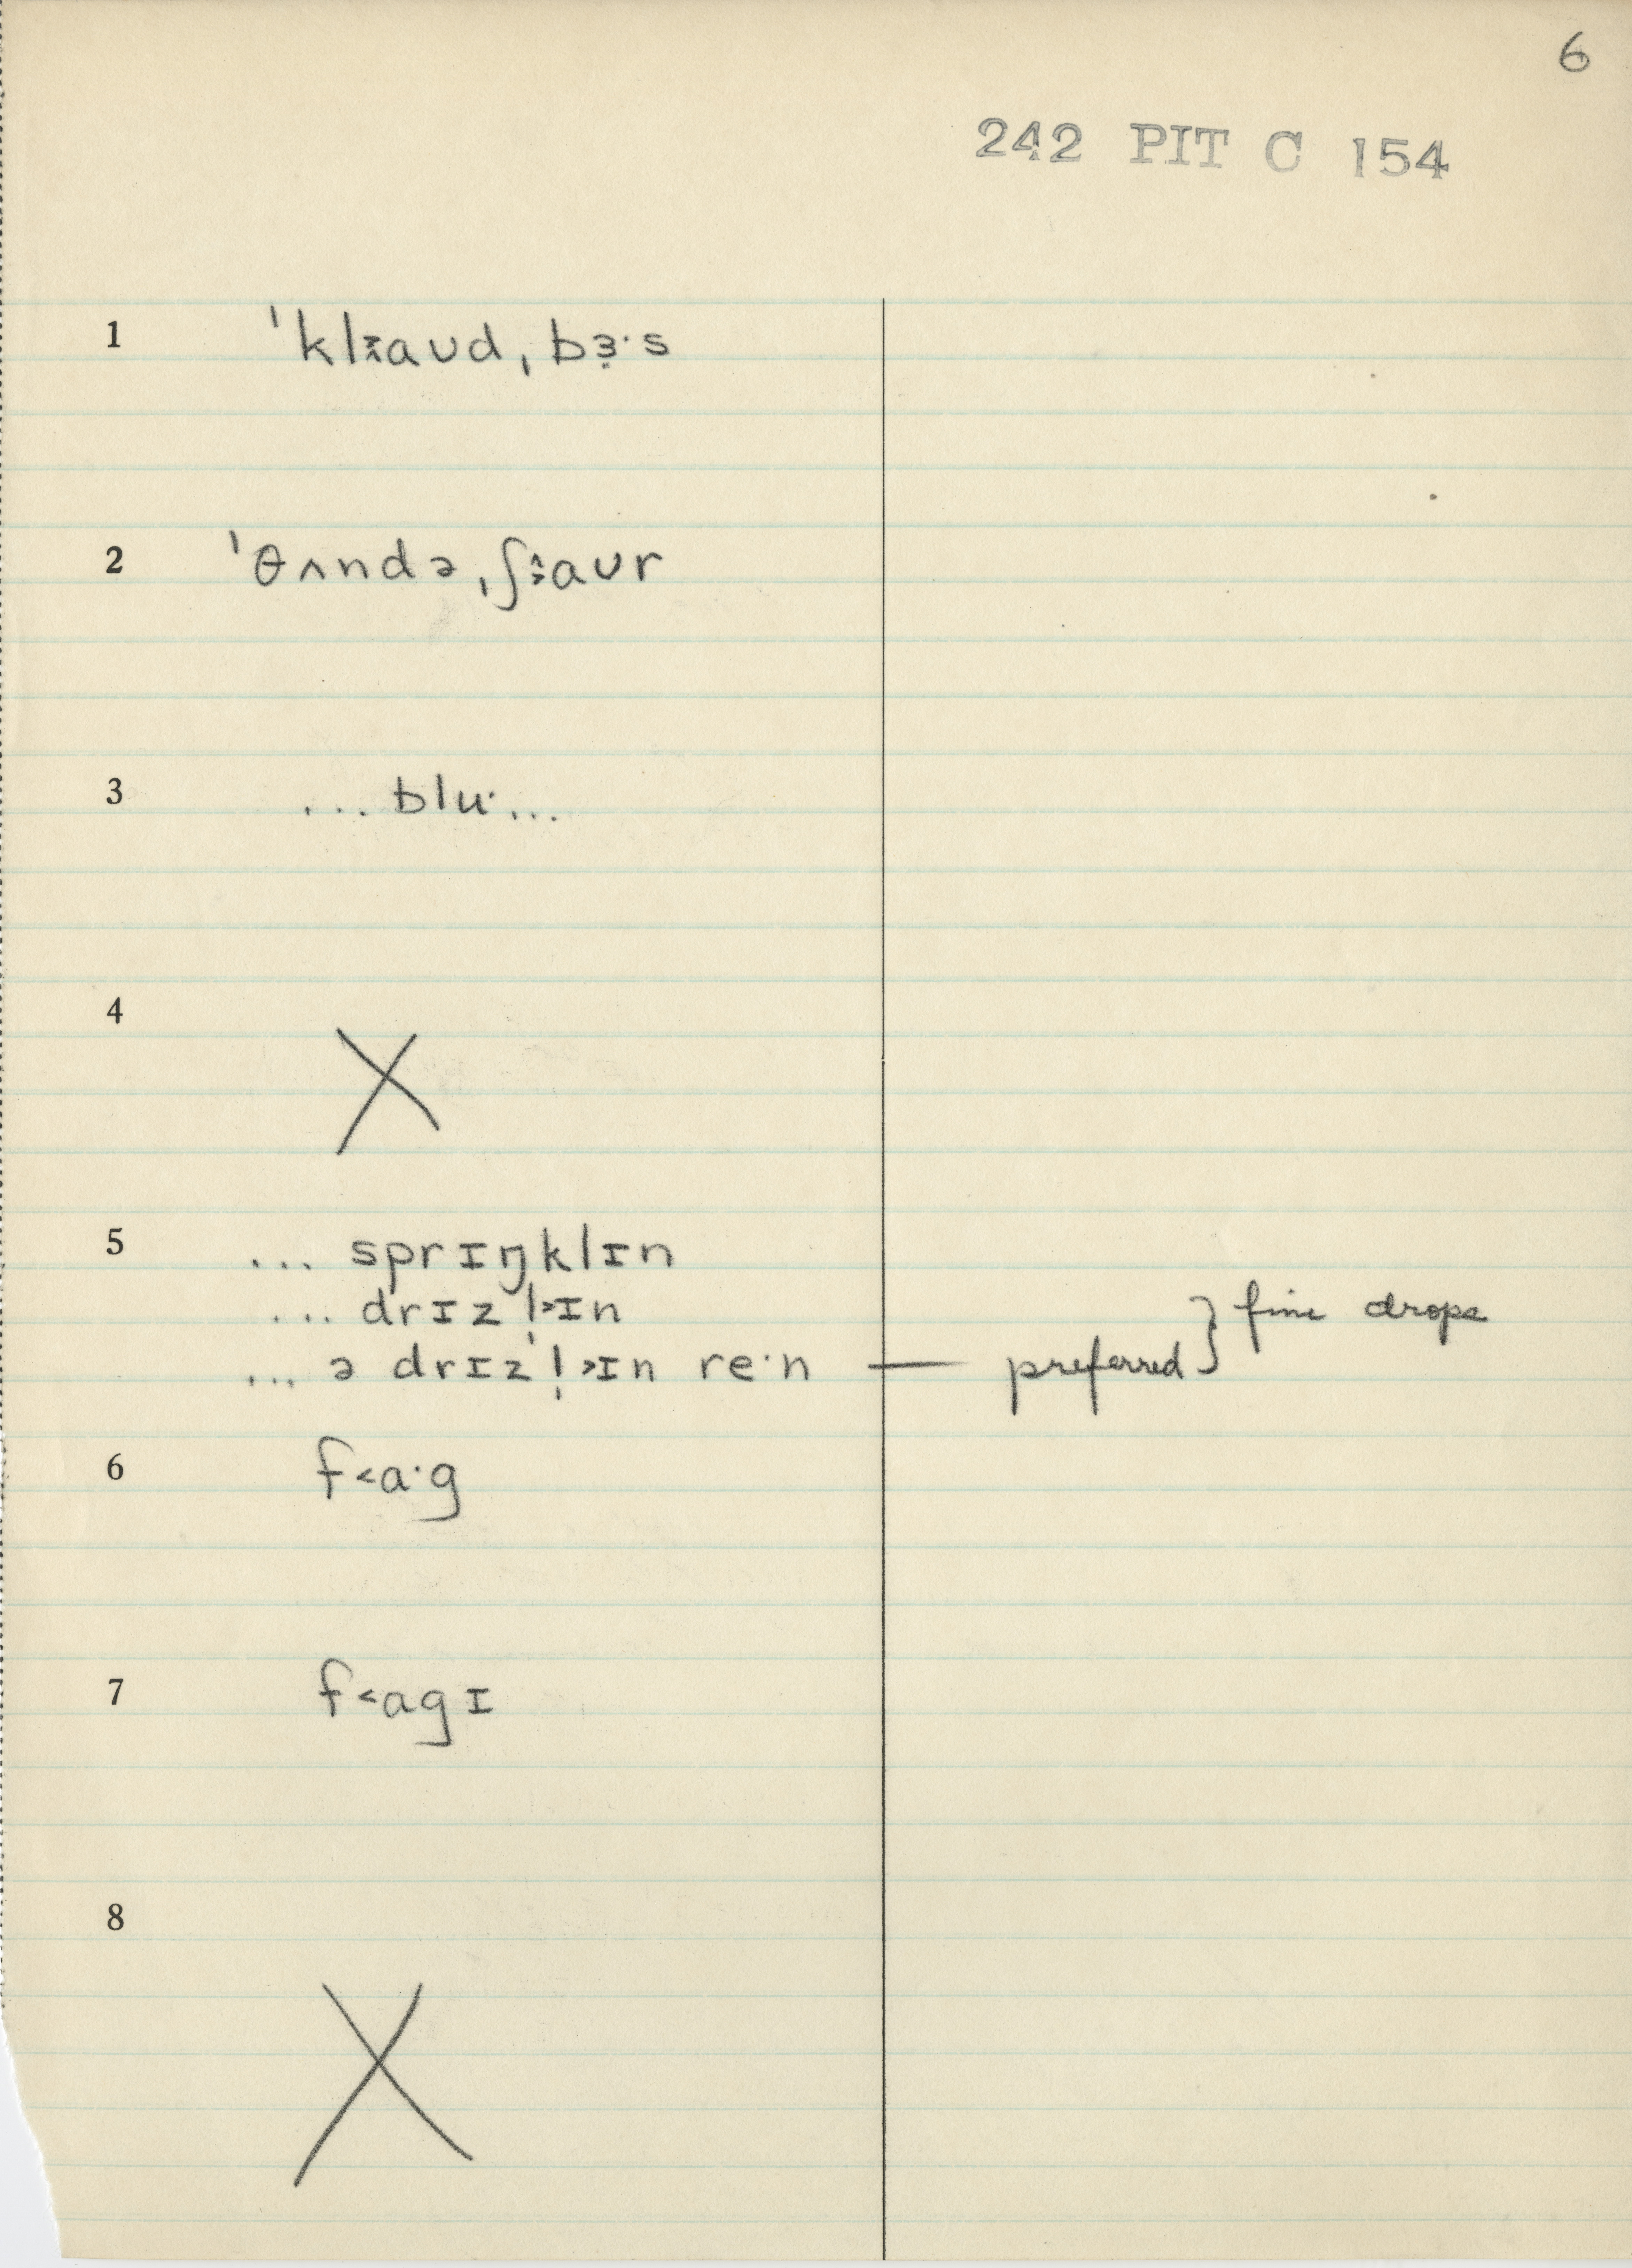 6
242 PIT C 154
1 ˈkl⌃˃aʊd,ˌbɜ·s
2 ˈθʌndə,ˌʃ⌃˃aʊr
3 ... blu· ...
4 X
5 ... sprɪŋklɪn
... drɪzl̩˃ɪn
... ə drɪzl̩˃ɪn re·n — preferred } fine drops
6 f˂a·g
7 f˂agɪ
8 X